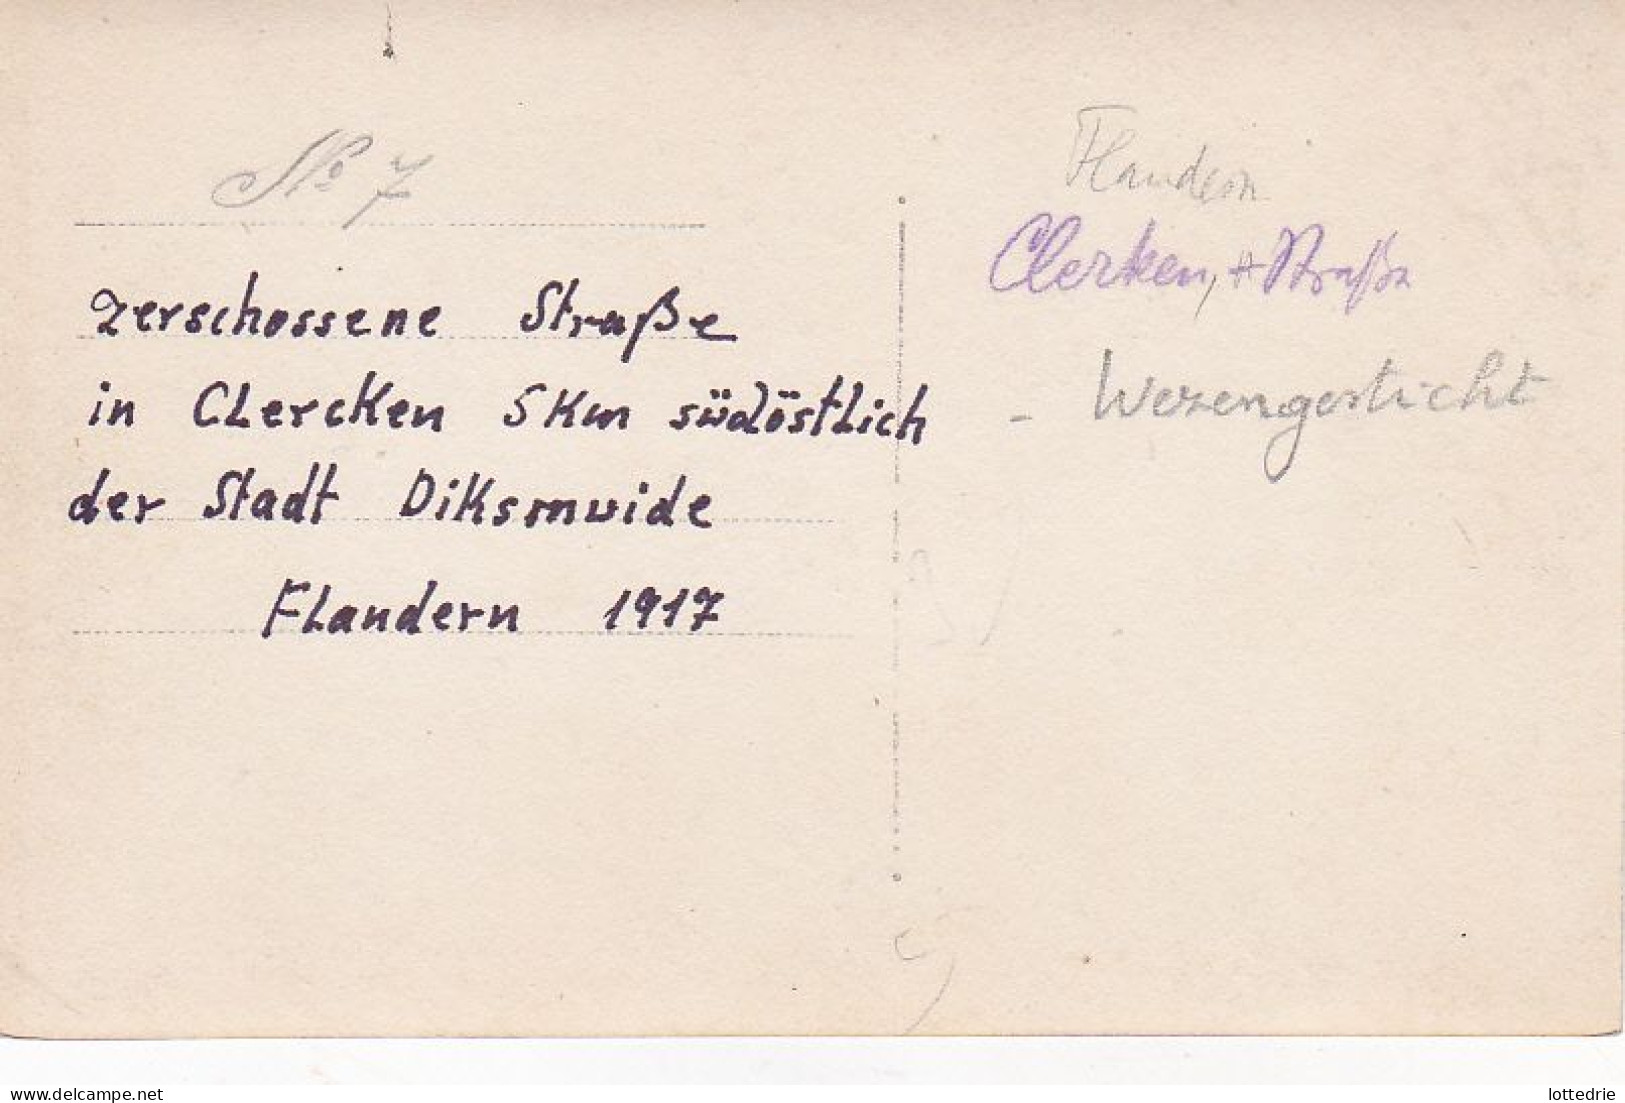 No 7
zerschossene Straße
in Clercken 5 Km südöstlich
der Stadt Diksmuide
Flandern 1917
Flandern
Clerken, Straße
- Wezengesticht
delcampe.net
lottedrie